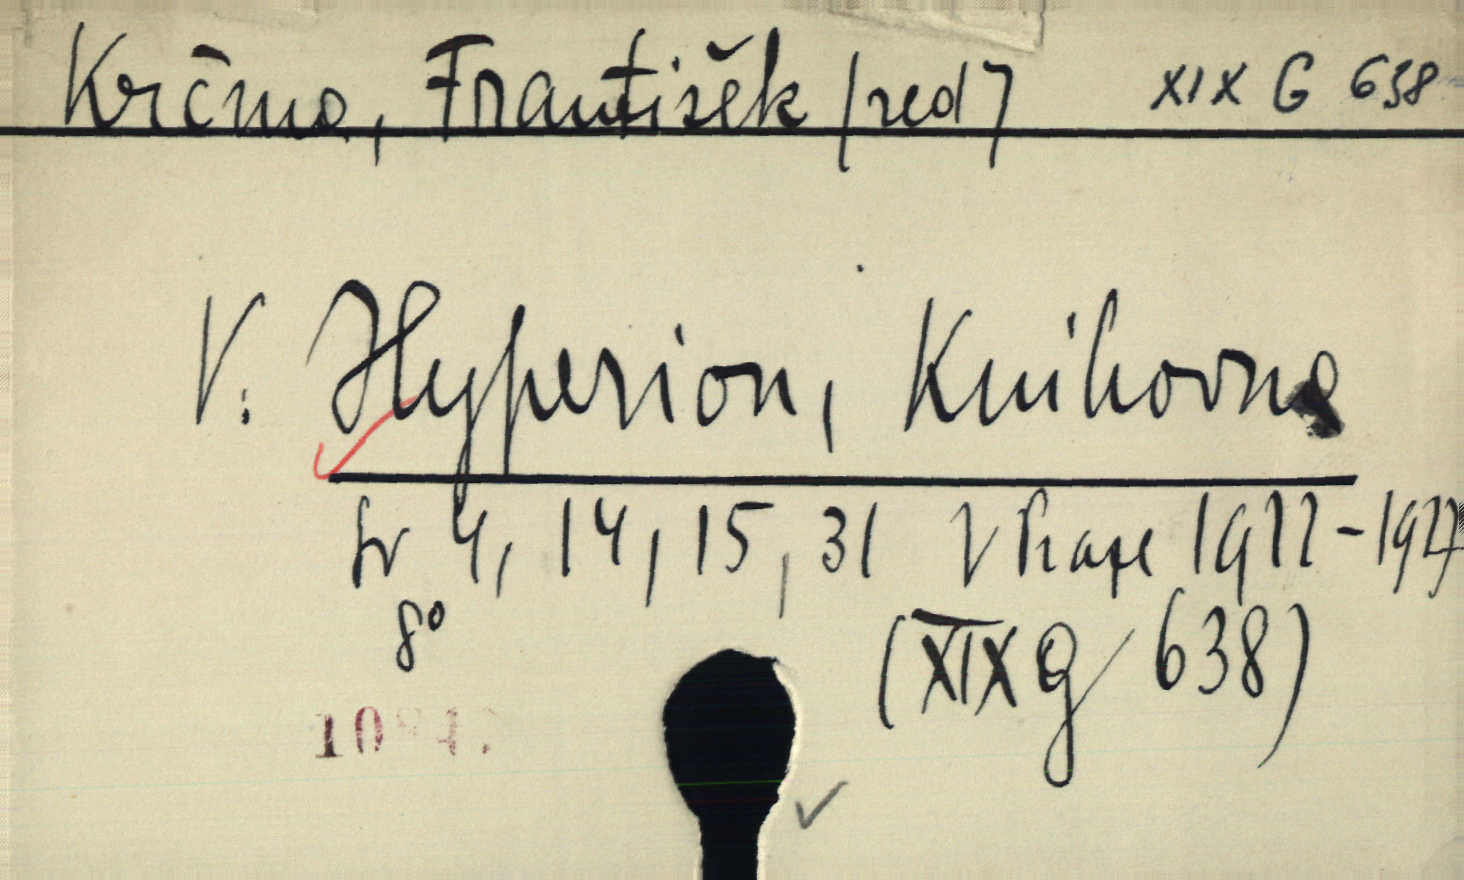 Krčma, František /red/ XIX G 638
V. Hyperion, Knihovna
sv 4, 14, 15, 31 V Praze 1922-1927
8°
(XIX g 638)